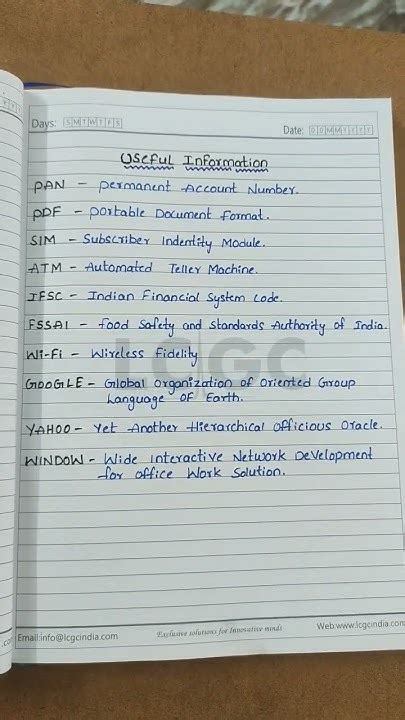 Days: S M T W T F S
Date: D D M M Y Y Y Y
Useful Information
PAN - Permanent Account Number.
PDF - Portable Document Format.
SIM - Subscriber Indentity Module.
ATM - Automated Teller Machine.
IFSC - Indian Financial System Code.
FSSAI - Food Safety and Standards Authority of India.
Wi-Fi - Wireless Fidelity
GOOGLE - Global Organization of Oriented Group
Language of Earth.
YAHOO - Yet Another Hierarchical Officious Oracle.
WINDOW - Wide Interactive Network Development
for office Work Solution.
LCGC
Email:info@lcgcindia.com
Exclusive solutions for Innovative minds
Web:www.lcgcindia.com